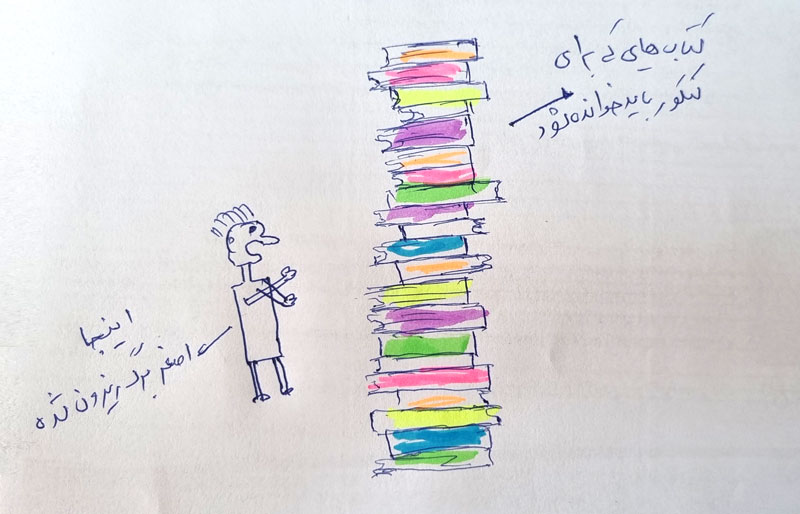 کتاب‌هایی که برای
کنکور باید خوانده شود
اینجا
اصغر برگ ریزون شده